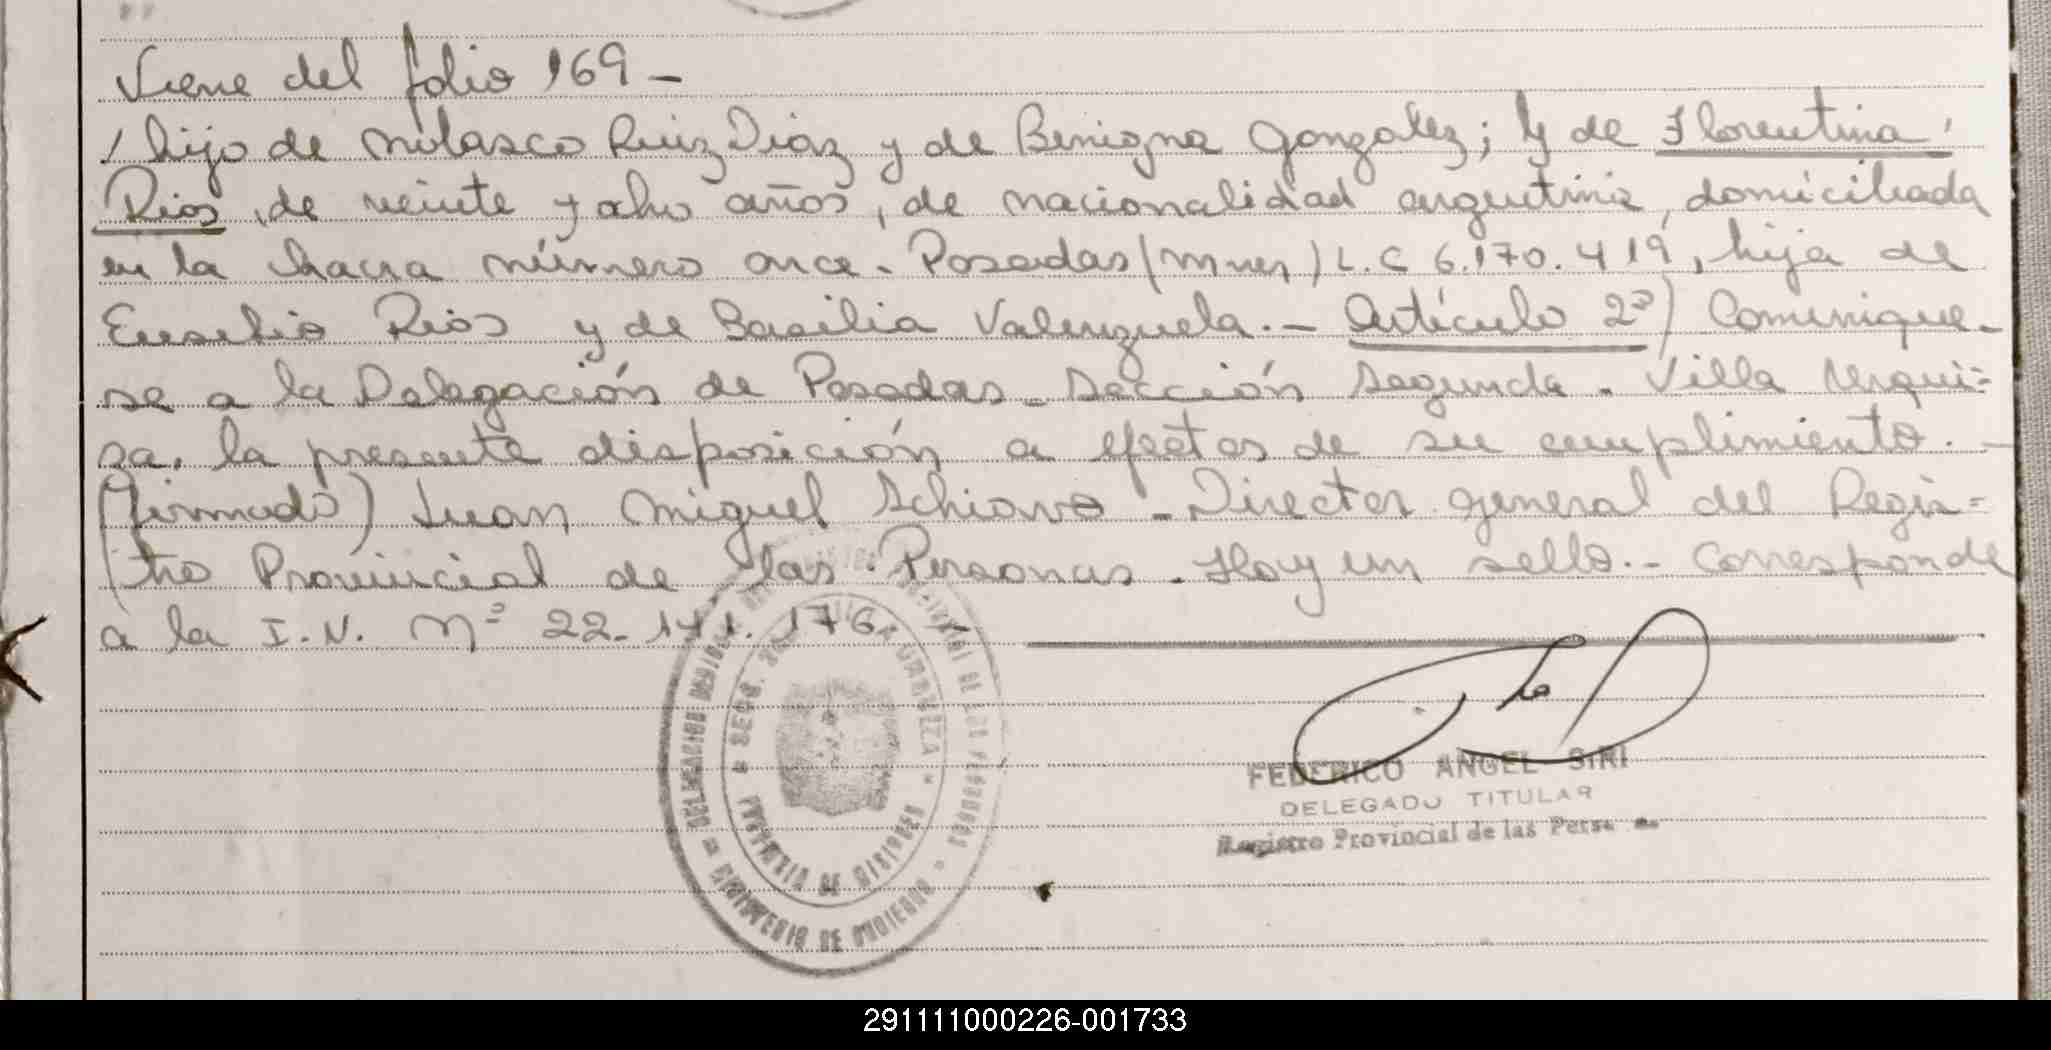 Viene del folio 169 -
/ hijo de Milasco Ruiz Diaz y de Benigna Gonzalez; y de Florentina
Rios, de veinte y ocho años, de nacionalidad argentina, domiciliada
en la chacra número once. Posadas (Mnes) L.C 6.170.419, hija de
Eusebio Rios y de Basilia Valenzuela. - Artículo 2º) Comunique-
se a la Delegación de Posadas - Sección Segunda - Villa Urqui=
za, la presente disposición a efectos de su cumplimiento. -
(Firmado) Juan Miguel Schiavo - Director general del Regis=
tro Provincial de las Personas. Hay un sello. - Corresponde
a la I.N. Nº 22.141.176 -
VILLA URQUIZA
PROVINCIA DE MISIONES
MINISTERIO DE GOBIERNO
FEDERICO ANGEL SIRI
DELEGADO TITULAR
Registro Provincial de las
291111000226-001733